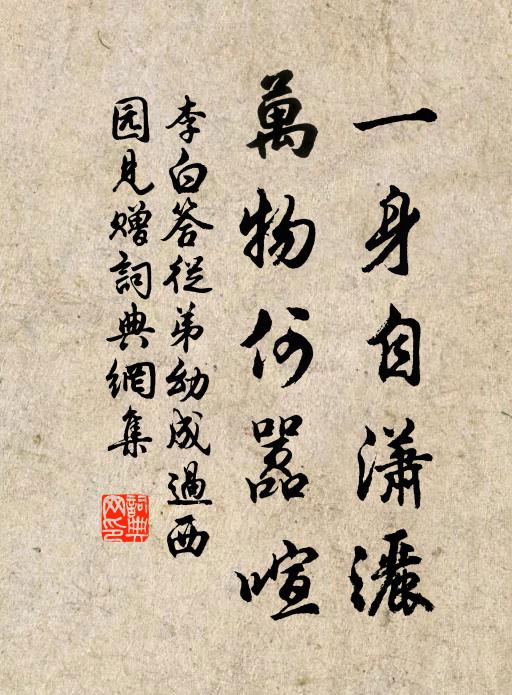 一身自瀟灑
萬物何囂喧
李白答從弟幼成過西
园見贈詞典網集
詞典
网印